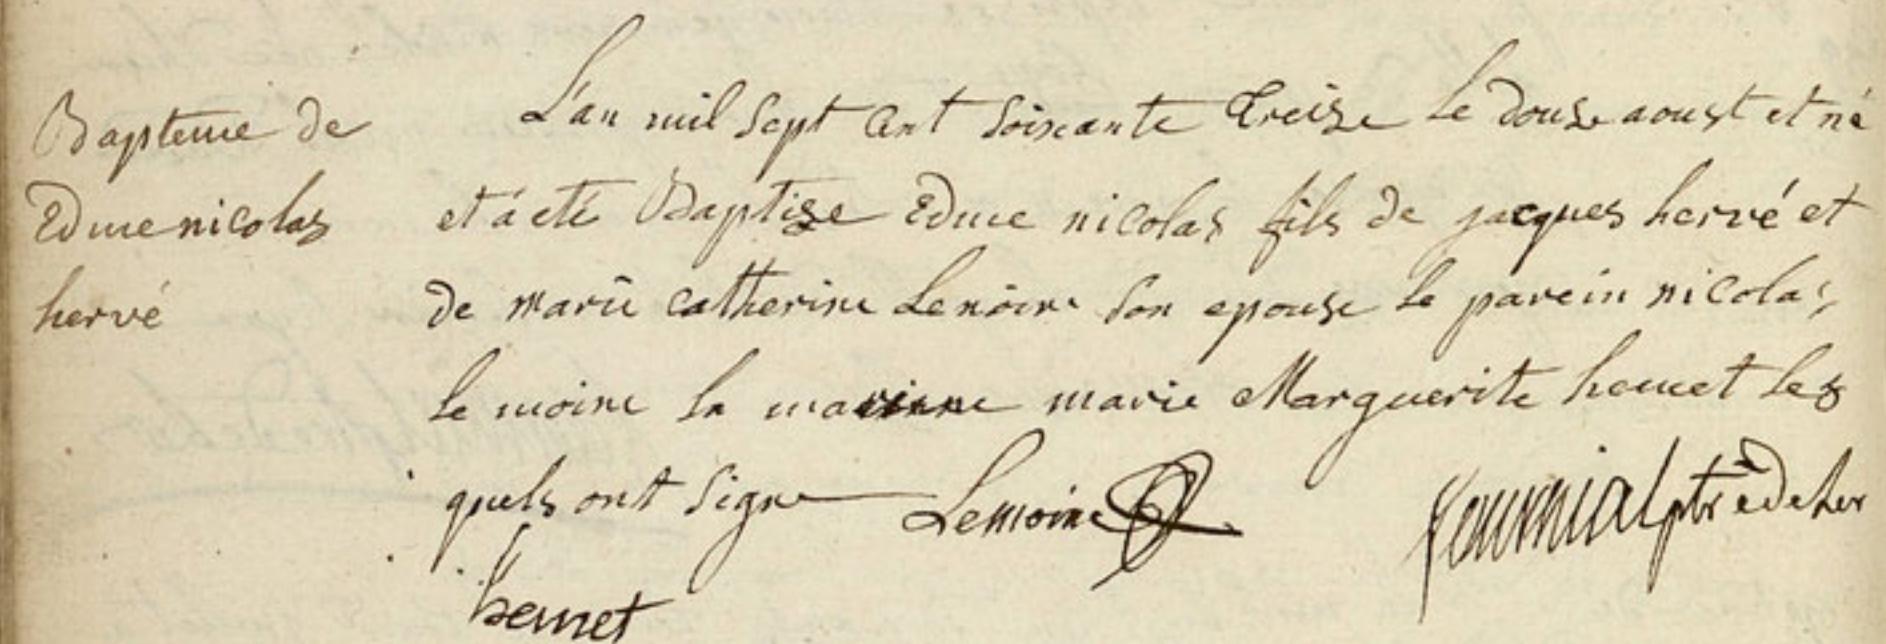 Bapteme de
Edme nicolas
hervé
L'an mil Sept Cent Soixante Treize Le Douze aoust et né
et a eté Baptize Edme nicolas fils de jacques hervé et
de marie Catherine Lemoine Son epouse le parein nicolas
le moine la marinne marie Marguerite hemet les
quels ont Signe Lemoine
hemet